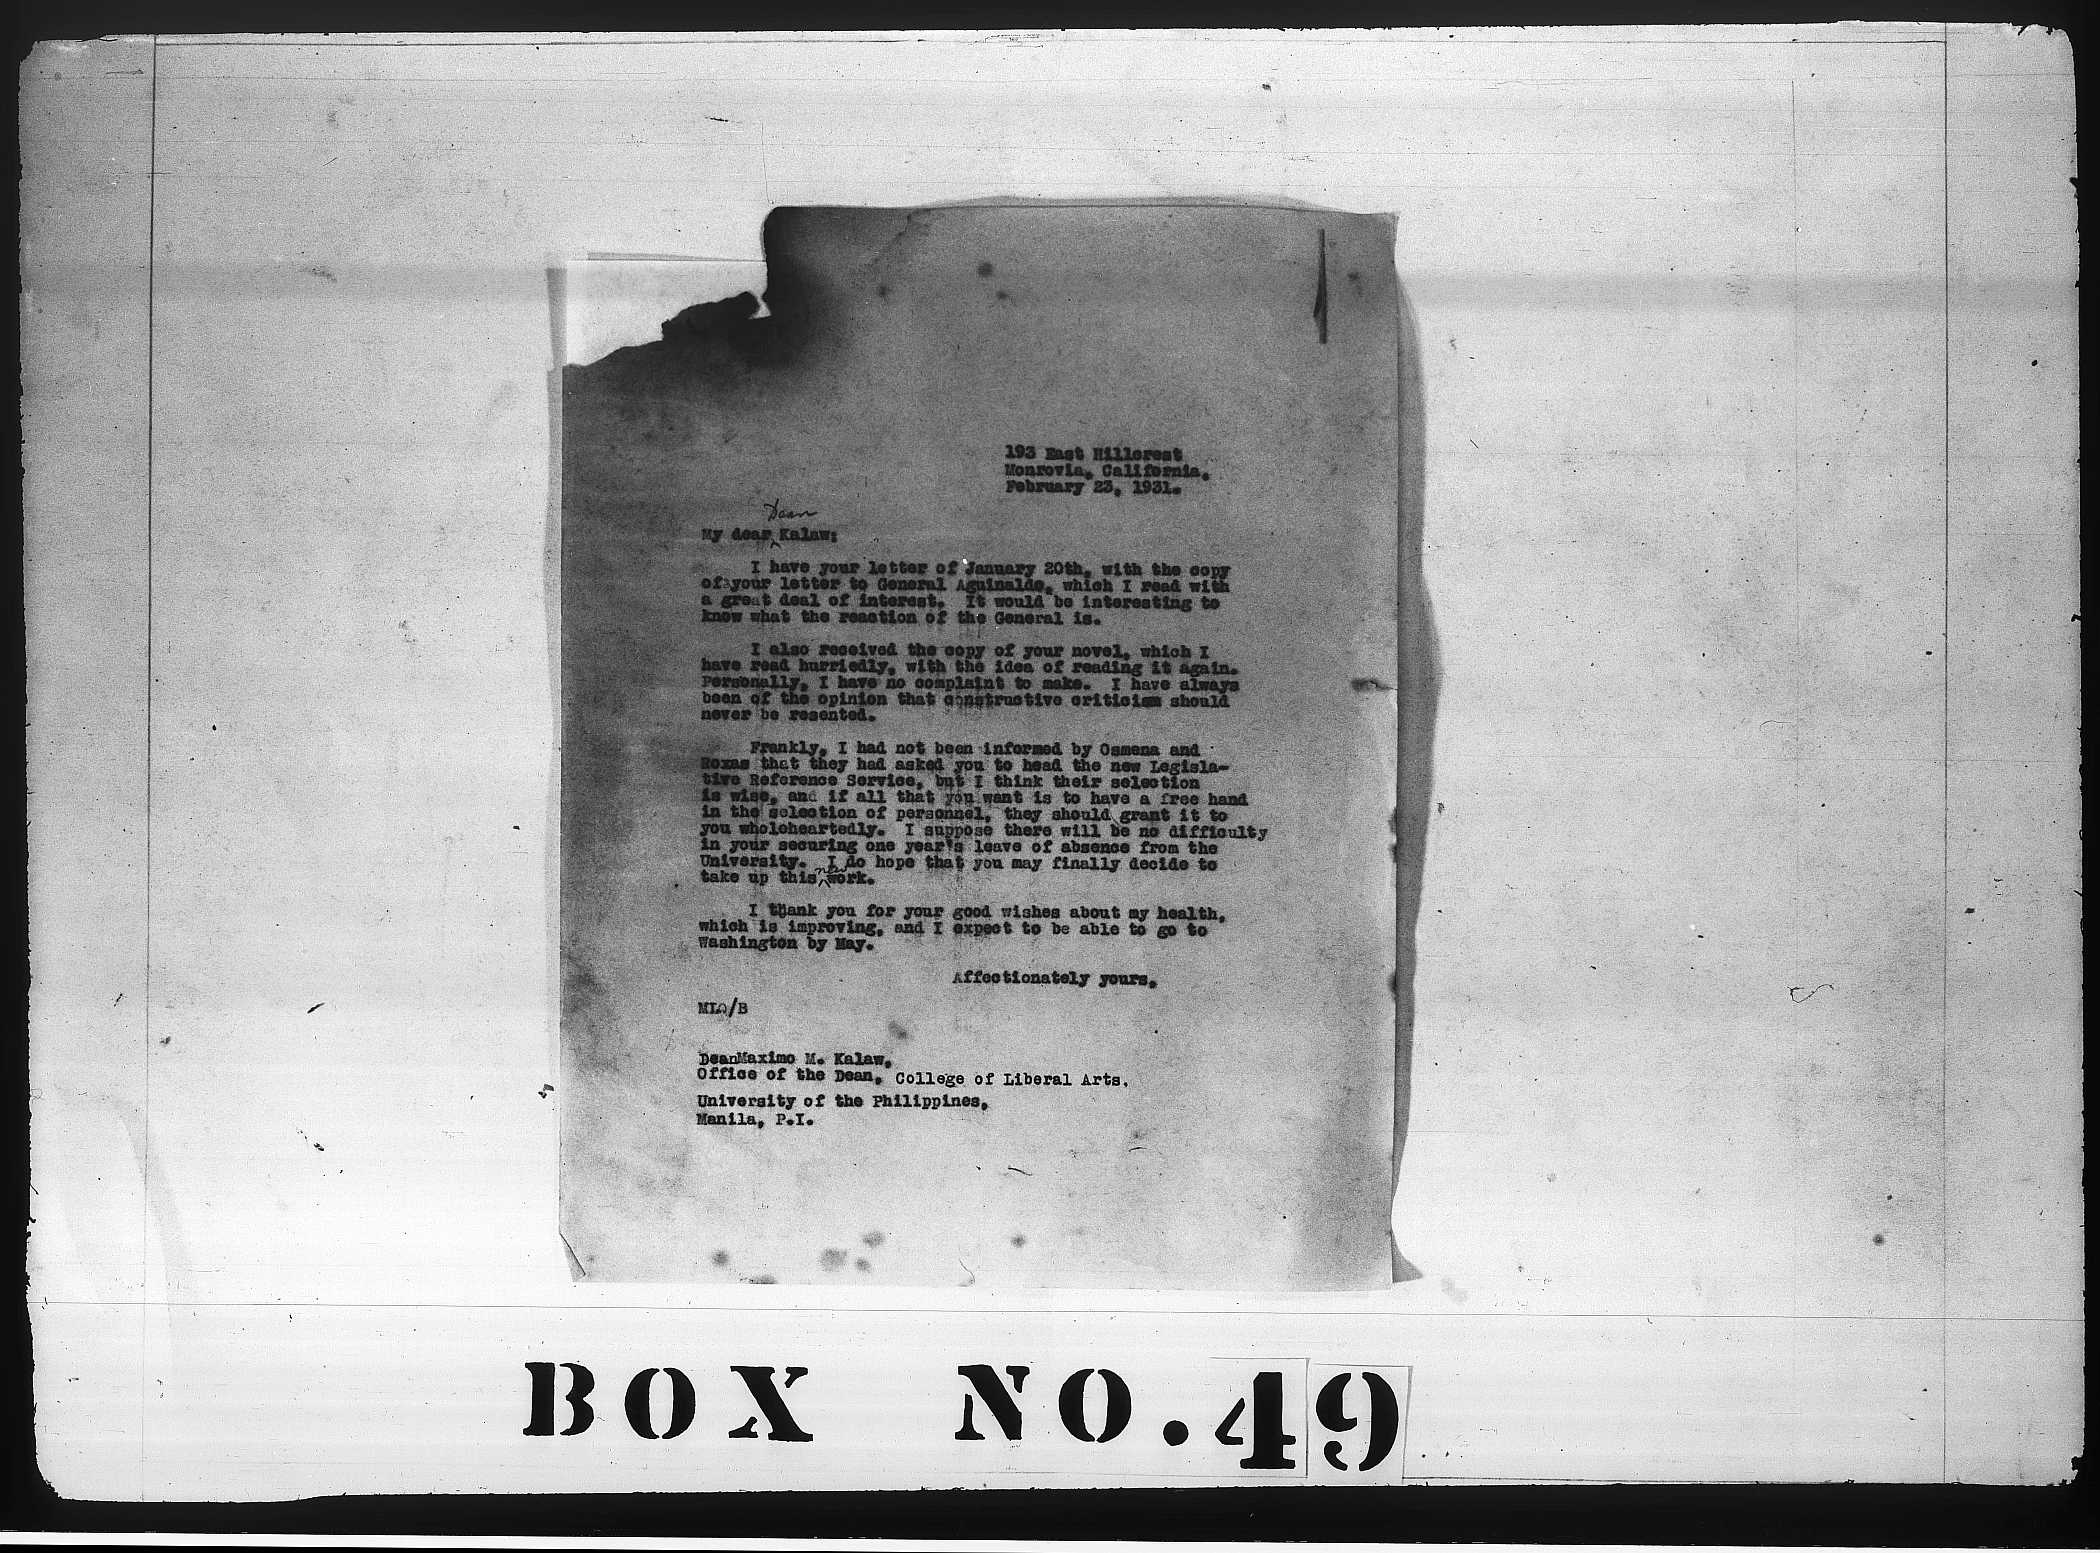 193 East Hillcrest
Monrovia, California,
February 23, 1931.
Dean
My dear Kalaw:
I have your letter of January 20th, with the copy
of your letter to General Aguinaldo, which I read with
a great deal of interest. It would be interesting to
know what the reaction of the General is.
I also received the copy of your novel, which I
have read hurriedly, with the idea of reading it again.
Personally, I have no complaint to make. I have always
been of the opinion that constructive criticism should
never be resented.
Frankly, I had not been informed by Osmena and
Roxas that they had asked you to head the new Legisla-
tive Reference Service, but I think their selection
is wise, and if all that you want is to have a free hand
in the selection of personnel, they should grant it to
you wholeheartedly. I suppose there will be no difficulty
in your securing one year's leave of absence from the
University. I do hope that you may finally decide to
take up this new work.
I thank you for your good wishes about my health,
which is improving, and I expect to be able to go to
Washington by May.
Affectionately yours,
MLQ/B
DeanMaximo M. Kalaw,
Office of the Dean, College of Liberal Arts.
University of the Philippines,
Manila, P.I.
BOX NO. 49